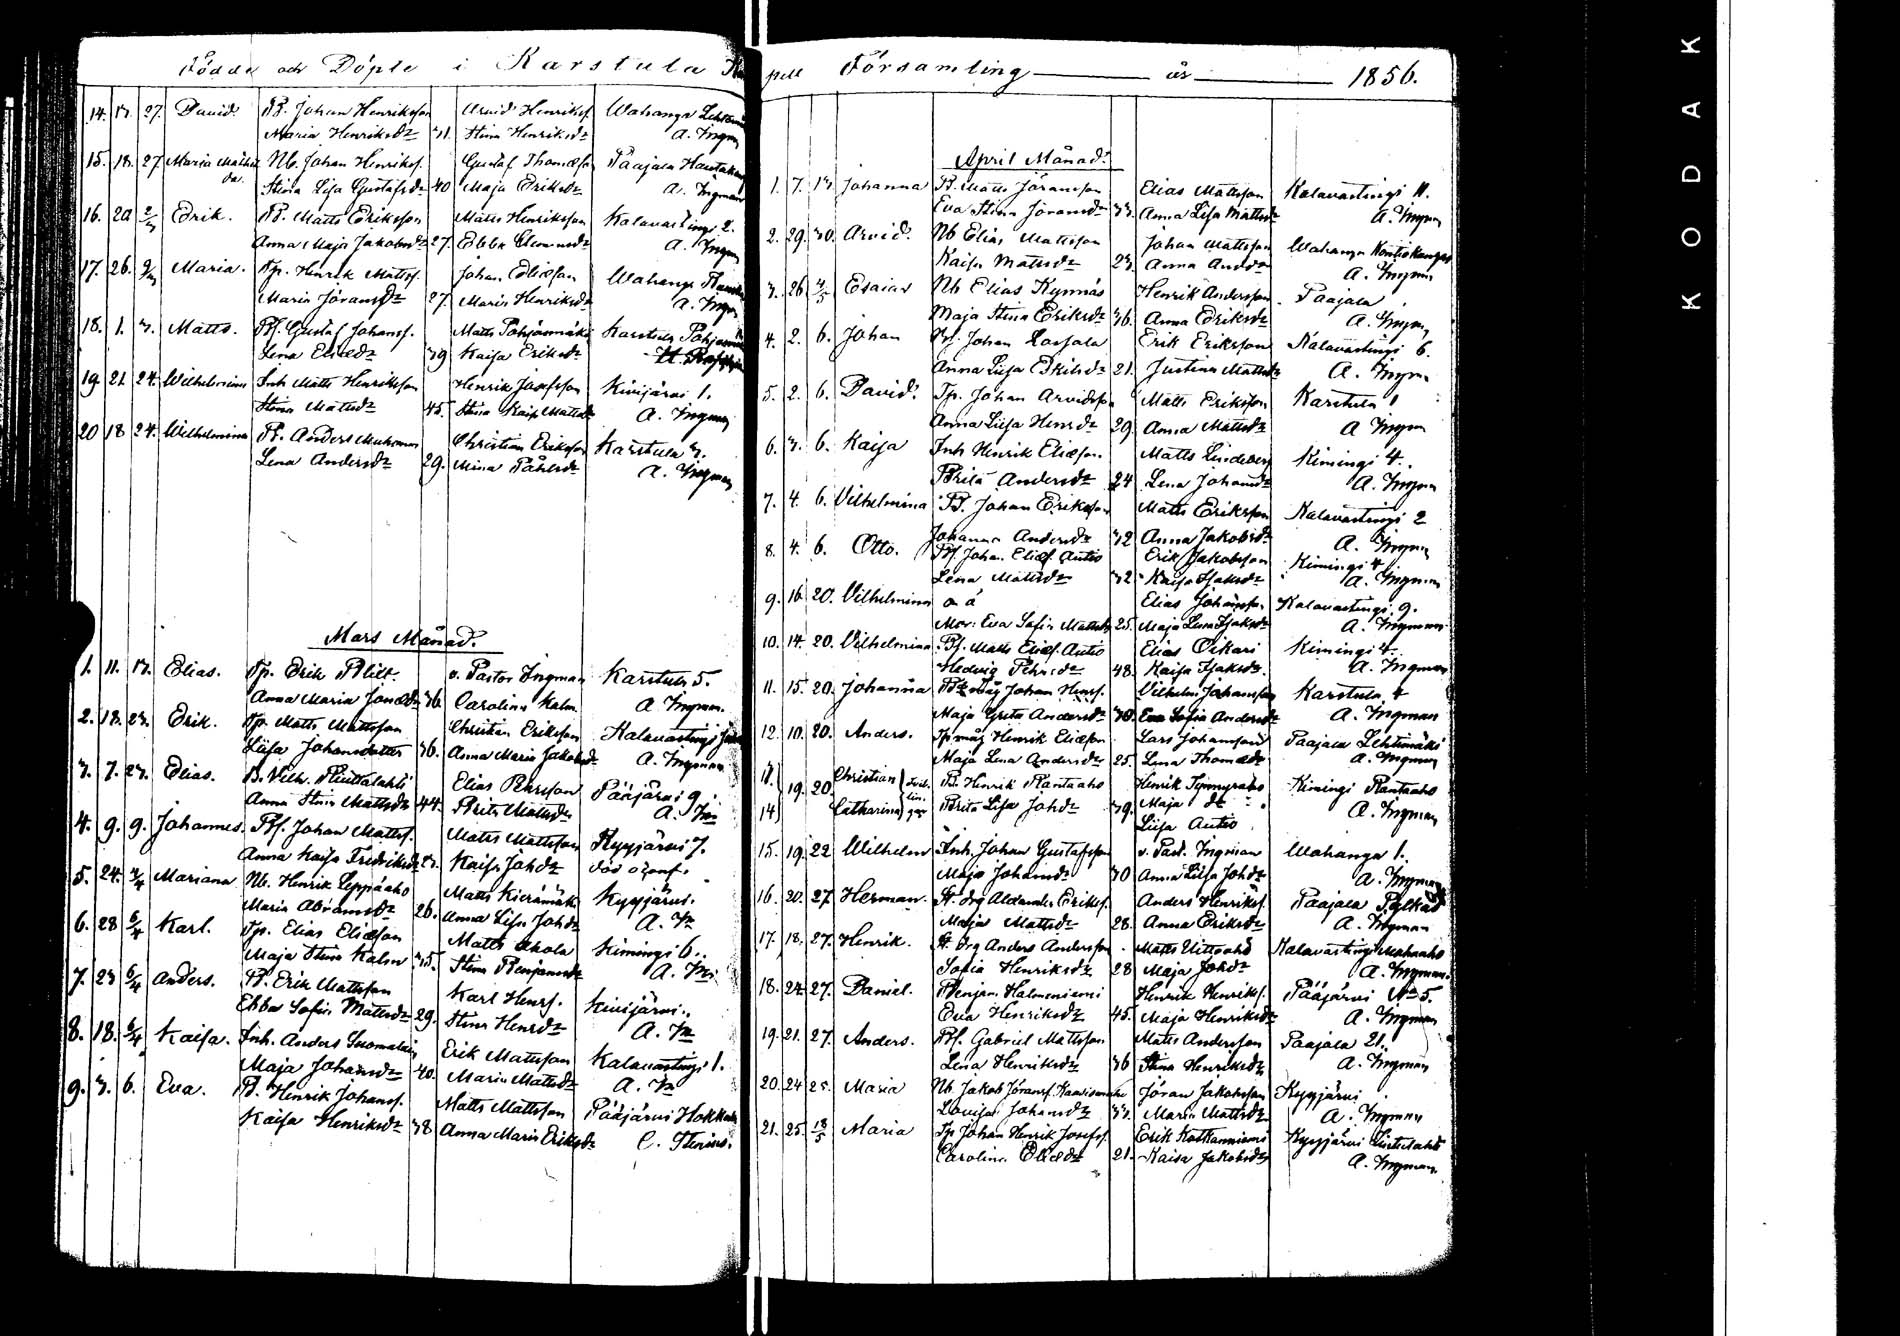 Födde och Döpte i Karstula
14. 13. 27. David. B. Johan Henriksson Arvid Henrikss. Wahanga
Maria Henriksdr 31. Stina Henriksdr A. Ingman
15. 18. 27 Maria Mathilda. Nb. Johan Henrikss. Gustaf Thomasson Paajala
Stina Lisa Gustafsdr 40 Maja Eriksdr A. Ingman
16. 20 2/3 Erik. B. Matts Eriksson Matts Henriksson Kalavastingi 2.
Anna Maja Jakobsdr 27. Ebba A. Ingman
17. 26. 9/3 Maria. Tp. Henrik Mattss. Johan Eliasson Wahanga
Maria Göransdr 27. Maria Henriksdr A. Ingman
18. 1. 3. Matts. Bf. Gustaf Johanss. Matts Pohjanmäki Karstula
Lena Eliædr 39 Kaisa Eriksdr
19 21 24. Wilhelmina Inh Matts Henriksson Henrik Josefsson Kivijärvi 1.
Stina Mattsdr 45. Stina Kaisa Mattsdr A. Ingman
20 18 24. Wilhelmina B. Anders Christian Eriksson Karstula 3.
Lena Andersdr 29. Mina Påhlsdr A. Ingman
Mars Månad.
1. 11. 13. Elias. Tp. Erik Blilt. v. Pastor Ingman Karstula 5.
Anna Maria Jonædr 36. Carolina Kalm A. Ingman.
2. 18. 23. Erik. Tp. Matts Mattsson Christian Eriksson Kalavastingi
Liisa Johansdotter 36. Anna Maria Jakobsdr A. Ingman
3. 7. 23. Elias. B. Vilh. Elias Pehrsson Pääjärvi 9
Anna Stina Mattsdr 44. Brita Mattsdr A. In
4. 9. 9. Johannes. Bf. Johan Mattss. Matts Mattsson Kyyjärvi 7.
Anna Kaisa Fredriksdr 23. Kaisa Johdr
5. 24. 4/4 Mariana Nb. Henrik Leppäaho Matts Kyyjärvi.
Maria Abramsdr 26. Anna Lisa Johdr A. In
6. 28 6/4 Karl. Tp. Elias Eliasson Matts Ahola Kimingi 6.
Maja Stina Kalm 35. Stina Benjamsdr A. In
7. 23 6/4 Anders. B. Erik Mattsson Karl Henrs. Kivijärvi.
Ebba Sofia Mattsdr 29. Stina Henrsdr A. In
8. 18. 6/4 Kaisa. Inh. Anders Suomalain Erik Mattsson Kalavastingi 1.
Maja Johansdr 40. Maria Mattsdr A. In
9. 3. 6. Eva. B. Henrik Johanss. Matts Mattsson Pääjärvi
Kaisa Henriksdr 38 Anna Maria Eriksdr C. Stenius.
pell Församling år 1856.
April Månad.
1. 7. 13. Johanna B. Matts Göransson Elias Mattsson Kalavastingi 11.
Eva Stina Göransdr 33. Anna Lisa Mattsdr A. Ingman
2. 29. 30. Arvid. Nb Elias Mattsson Johan Mattsson Wahanga Kontiokangas
Kaisa Mattsdr 23. Anna Andsdr A. Ingman
3. 26 4/5 Esaias Nb Elias Kynnäs Henrik Andersson Paajala
Maja Stina Eriksdr 36. Anna Eriksdr A. Ingman
4. 2. 6. Johan Bf. Johan Erik Eriksson Kalavastingi 6.
Anna Liisa Eskilsdr 21. Justina Mattsdr A. Ingman
5. 2. 6. David. Tp. Johan Arvidsson Matts Eriksson Karstula 1
Anna Liisa Henrsdr 29. Anna Mattsdr A Ingman
6. 3. 6. Kaisa Inh Henrik Eliasson. Matts Lindeberg Kimingi 4.
Brita Andersdr 24 Lena Johansdr A. Ingman
7. 4 6. Vilhelmina B. Johan Eriksson Matts Eriksson Kalavastingi 2
Johanna Andersdr 32 Anna Jakobsdr A. Ingman
8. 4. 6. Otto. Bf. Johan Eliæs. Autio Erik Jakobsson Kimingi 4
Lena Mattsdr 32. Kaisa Isaksdr A. Ingman
9. 16. 20. Vilhelmina o ä Elias Johansson Kalavastingi 9.
Mor: Eva Sofia Mattsdr 25. Maja Lena Isaksdr A. Ingman
10. 14. 20. Vilhelmina Bf. Matts Eliæs. Autio Elias Oikari Kimingi 4.
Hedvig Pehrsdr 48. Kaisa Isaksdr. A. Ingman
11. 15. 20. Johanna Bmåg Johan Henrs. Vilhelm Johansson Karstula 4
Maja Greta Andersdr 30. Eva Sofia Andersdr A. Ingman
12. 10. 20. Anders. Tpmåg Henrik Eliasson Lars Johansson Paajala Lehtimäki
Maja Lena Andersdr 25. Lena Thomædr A. Ingman
13 19. 20. Christian tvil- B. Henrik Rantaaho Henrik Kimingi Rantaaho
14 Catharina lingar Brita Lisa Johdr 39. Maja dr A. Ingman
Liisa Autio
15. 19. 22 Wilhelm Inh. Johan Gustafsson v. Past. Ingman Wahanga 1.
Maja Johansdr 30 Anna Liisa Johdr A. Ingman
16. 20. 27 Herman. St. drg Alexander Erikss. Anders Henrikss. Paajala
Maja Mattsdr 28. Anna Eriksdr A. Ingman
17. 18. 27. Henrik. St drg Anders Andersson Matts Uitoaho Kalavastingi
Sofia Henriksdr 28 Maja Johdr A. Ingman.
18. 24. 27. Daniel. Benjam. Halmeniemi Henrik Henrikss. Pääjärvi No 5.
Eva Henriksdr 45. Maja Henriksdr A. Ingman
19. 21. 27. Anders. Bf. Gabriel Mattsson Matts Andersson Paajala 21.
Lena Henriksdr 36 Stina Henriksdr A. Ingman
20. 24 25. Maria Nb. Jakob Görans. Göran Jakobsson Kyyjärvi
Lovisa Johansdr 33. Maria Mattsdr A. Ingman
21. 25. 18/5 Maria Tp Johan Henrik Josefss. Erik Kotkanniemi Kyyjärvi
Carolina Eliædr 21. Kaisa Jakobsdr A. Ingman.
KODAK